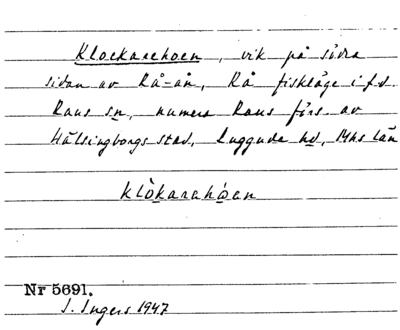 Klockarehoen, vik på södra
sidan av Rå-ån, Rå fiskläge i f.d.
Raus sn, numera Raus förs. av
Hälsingborgs stad, Luggude hd, Mhs län
klòkarahóen
Nr 5691.
I. Ingers 1947